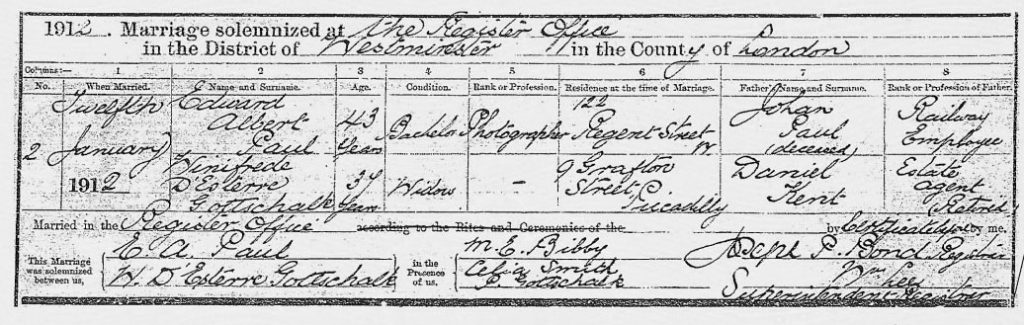 1912. Marriage solemnized at the Register Office
in the District of Westminster in the County of London
Columns:— 1 2 3 4 5 6 7 8
No. When Married. Name and Surname. Age. Condition. Rank or Profession. Residence at the time of Marriage. Father's Name and Surname. Rank or Profession of Father.
2 Twelfth January 1912
Edward Albert Paul 43 Years Bachelor Photographer 122 Regent Street W. Johan Paul (deceased) Railway Employee
Winifrede D'Esterre Gottschalk 37 Years Widow – 9 Grafton Street Piccadilly Daniel Kent Estate agent Retired
Married in the Register Office according to the Rites and Ceremonies of the by Certificate by me,
This Marriage was solemnized between us,
E. A. Paul
W. D'Esterre Gottschalk
in the Presence of us,
M. E. Bibby
Celia Smith
Gottschalk
P. Bond Registrar
Superintendent Registrar